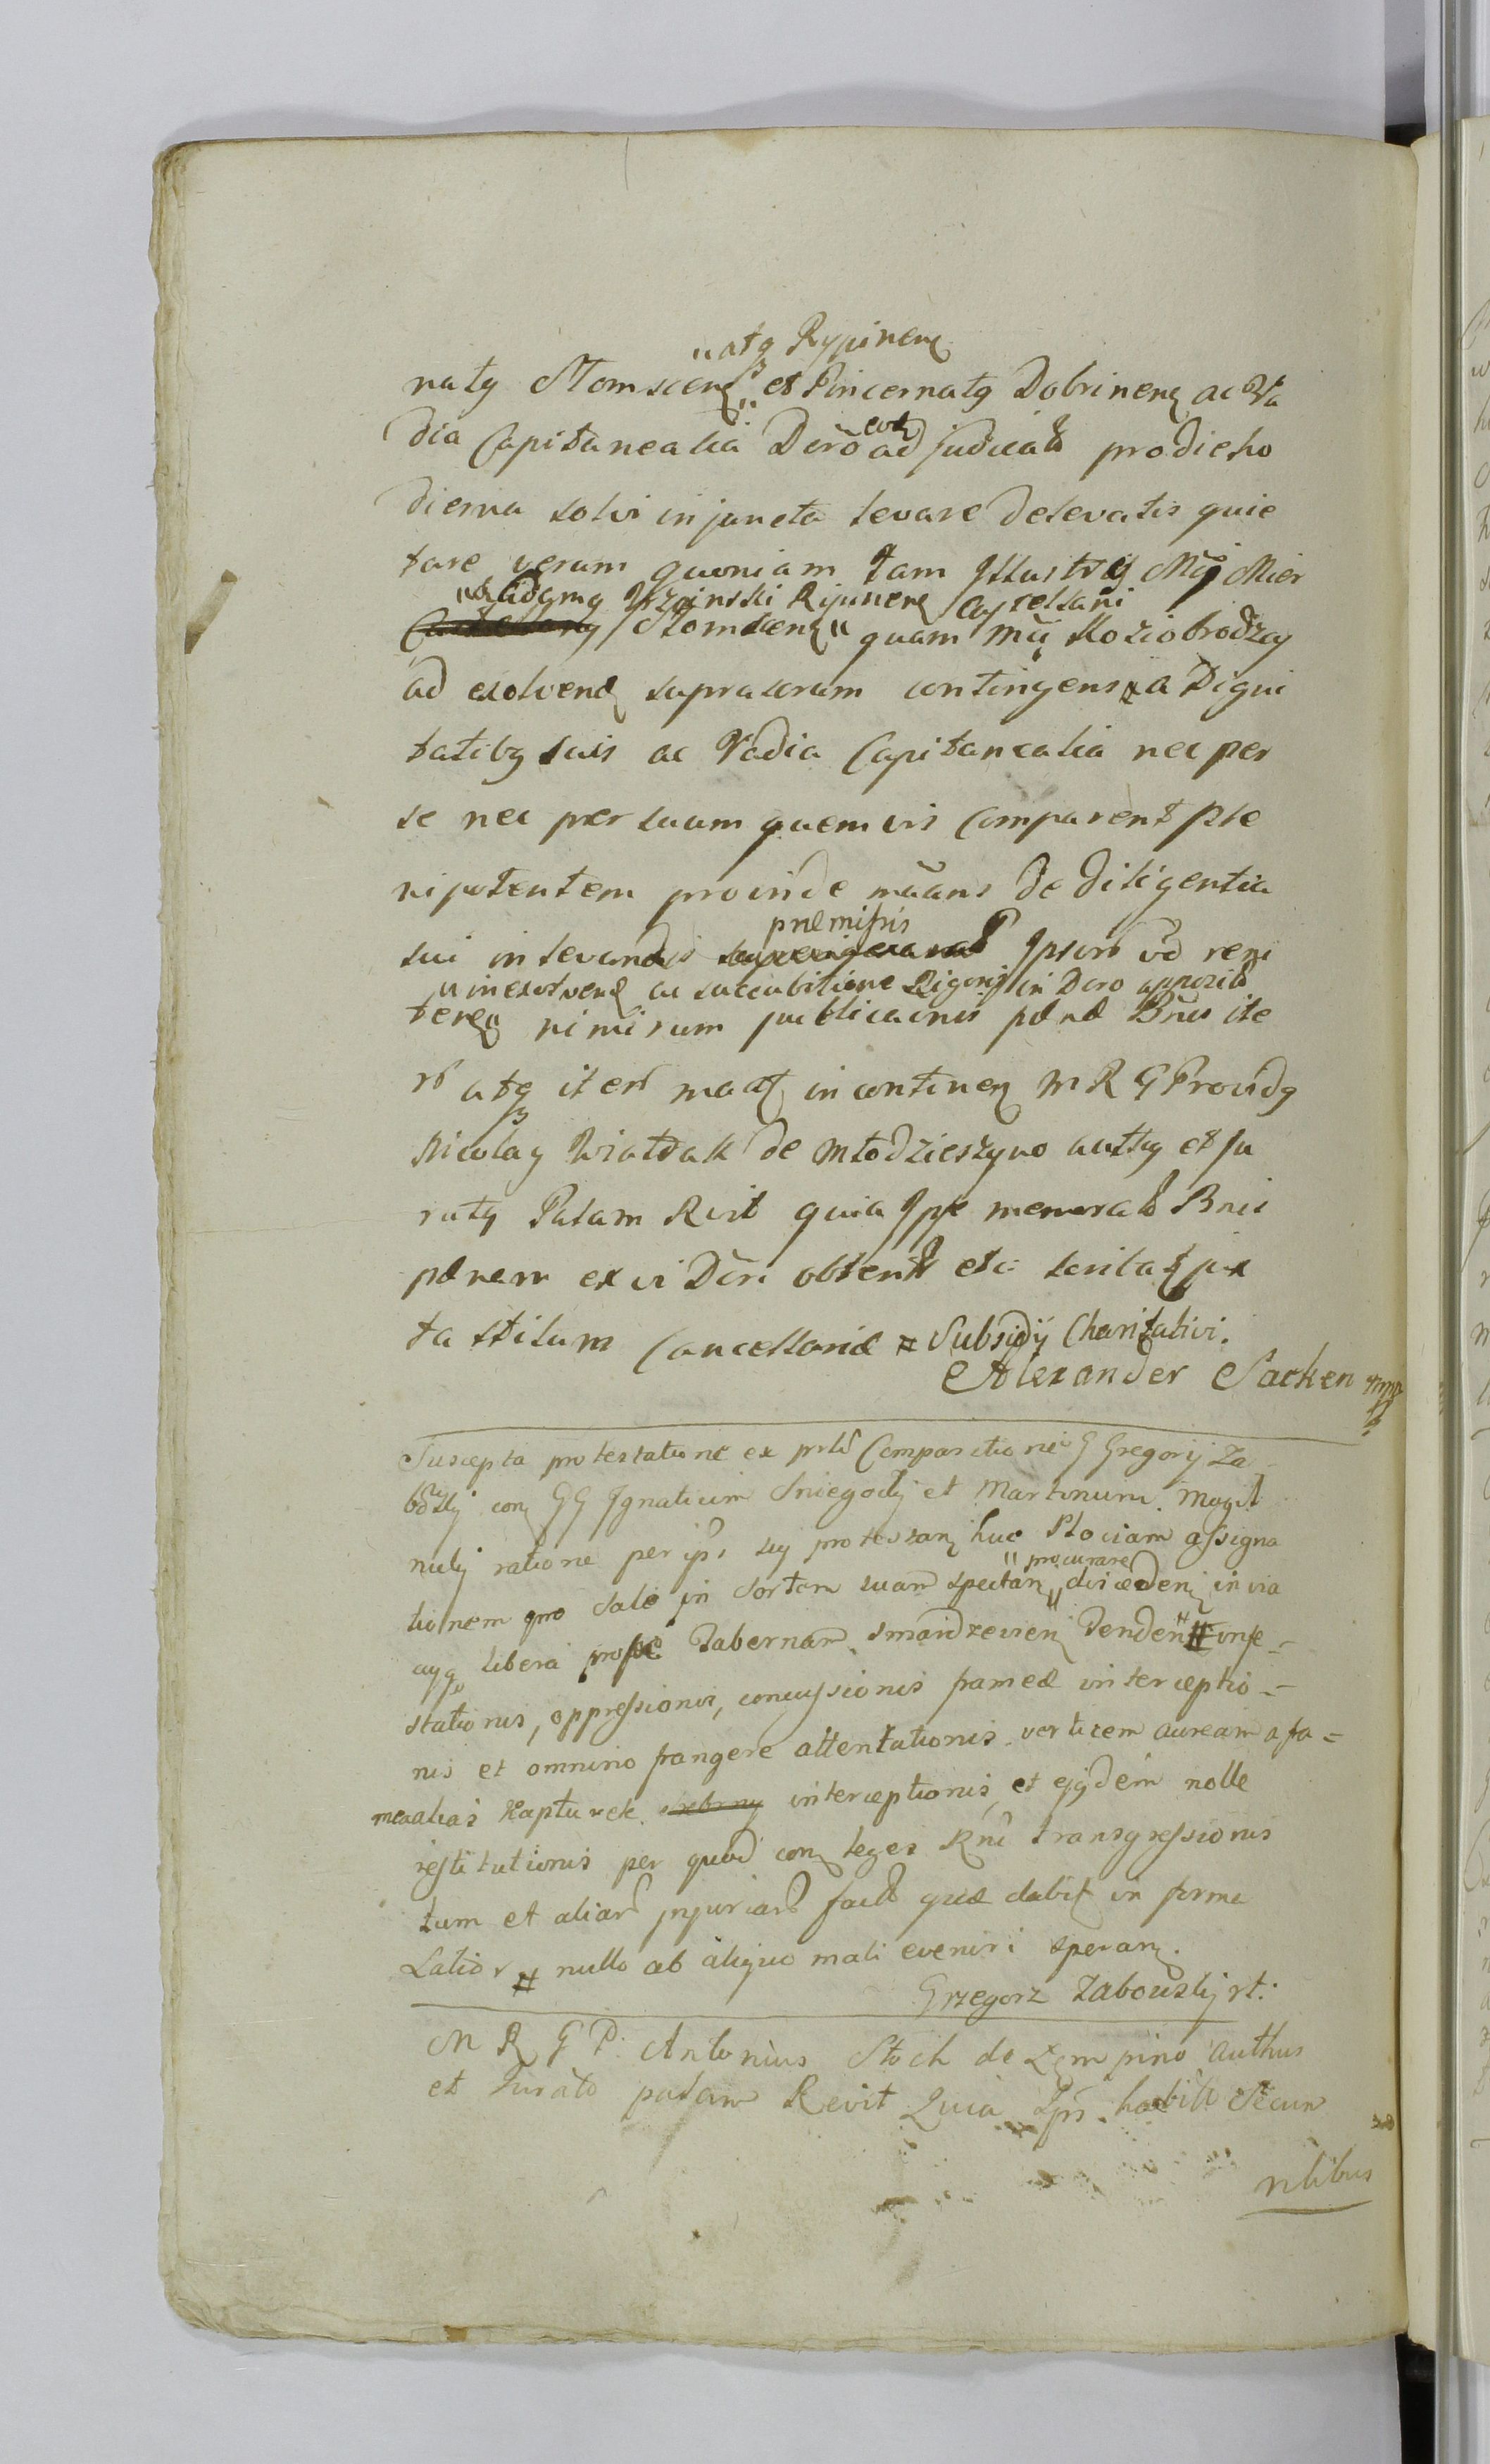 "atq Rypinen
natg Slomscen" et Pincernatg Dobrinen ac Va
dia Capitanealia Dcro eod adjudicat pro die ho
dierna solvi injuncta levare de levatis quie
tare verum quoniam tam Illustris Mgi Mier
Castellani Slomscen" quam Mci Koziobrodzcy
ad exolvend suprascrum contingens # a Digni
tatibg suis ac Vadia Capitanealia nec per
se nec per suum quemvis comparent ple
nipotentem proinde mãns de diligentia
præmissis
sui in levandis Ipsorum vo reni
"in exolvend ac succubitione Rigoris in Dcro apposit
ten" nimirum publicaonis pænæ Bnis ite
rũ atq iterũ maat in continen M R G Providg
Nicolag Kwiatkak de Młodzieszyno authg et Ju
ratg Palam Rvit quia Ipse memorat Bnis
pænam ex vi Dcri obtent etc: servitat jux
ta stilum Cancellariæ # Subsidij Charitativi.
Alexander Sacken mpp
Suscepta protestatione ex prtĩ Comparitione G Gregorij Za
bõskj con GG Ignatium Sniegockj et Martinum Mogil
nickj ratione per ips suy protestan huc Plociam assigna
"procurare
tionem pro sale in sortem suam spectan" discæden in via
aqq libera prope Tabernam Smardzevien Tenden # infe=
stationis, oppressionis, concussionis fameæ interceptio=
nis et omnino frangere attentationis verticem auream a fa=
mea alias kapturek interceptionis, et ejqdem nolle
restitutionis per quod con leges Rni transgressionis
tum et aliarũ injuriarũ fact quæ dabit in forma
Latior # nullo ab aliquo mali eveniri speran.
Grzegorz Zabowskj rt:
M R G P. Antonius Stoch de Zempino authus
et Jurato palam Revit Quia Ips habita secum
nlibus